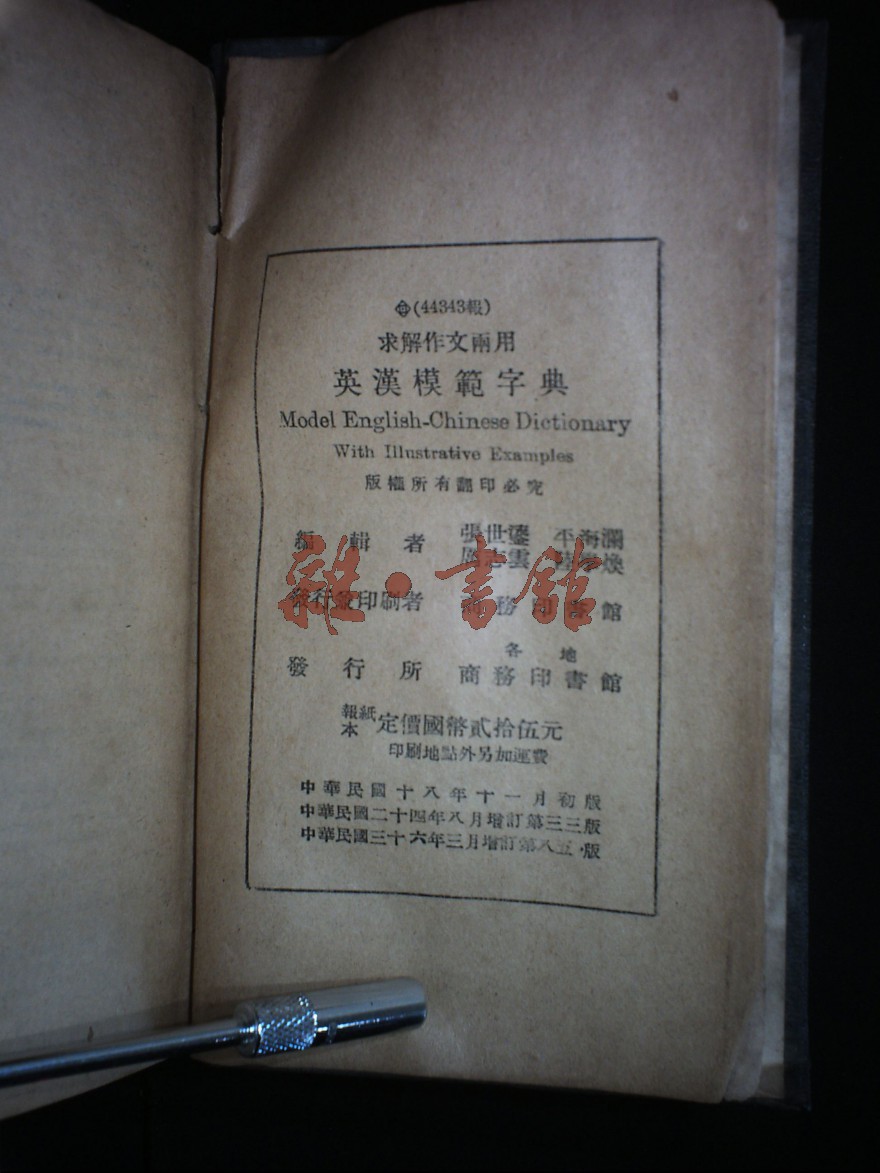 (44343報)
求解作文兩用
英漢模範字典
Model English-Chinese Dictionary
With Illustrative Examples
版權所有翻印必究
編輯者 張世鎏 平海瀾
厲志雲 陸學煥
發行兼印刷者 商務印書館
各地
發行所 商務印書館
報紙本 定價國幣貳拾伍元
印刷地點外另加運費
中華民國十八年十一月初版
中華民國二十四年八月增訂第三三版
中華民國三十六年三月增訂第八五版
雜·書館